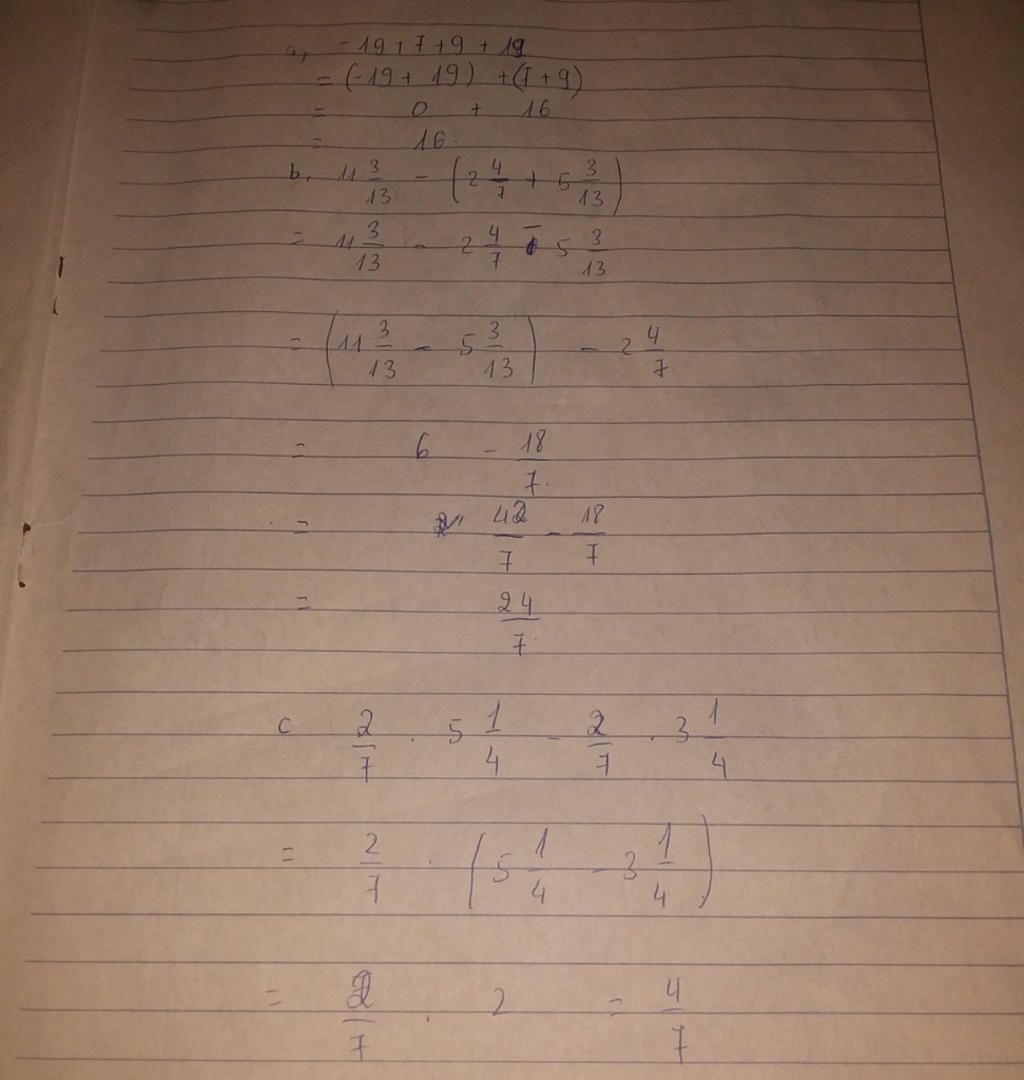 a, -19 + 7 + 9 + 19
= (-19 + 19) + (7 + 9)
= 0 + 16
= 16.
b, 11 3/13 - (2 4/7 + 5 3/13)
= 11 3/13 - 2 4/7 - 5 3/13
= (11 3/13 - 5 3/13) - 2 4/7
= 6 - 18/7.
= 42/7 - 18/7
= 24/7.
c 2/7 . 5 1/4 - 2/7 . 3 1/4
= 2/7 . (5 1/4 - 3 1/4)
= 2/7 . 2 = 4/7